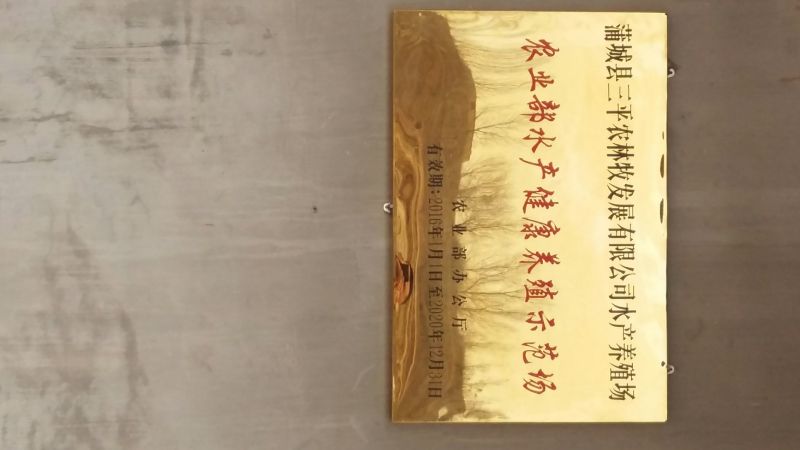 蒲城县三平农林牧发展有限公司水产养殖场
农业部水产健康养殖示范场
农业部办公厅
有效期：2016年1月1日至2020年12月31日